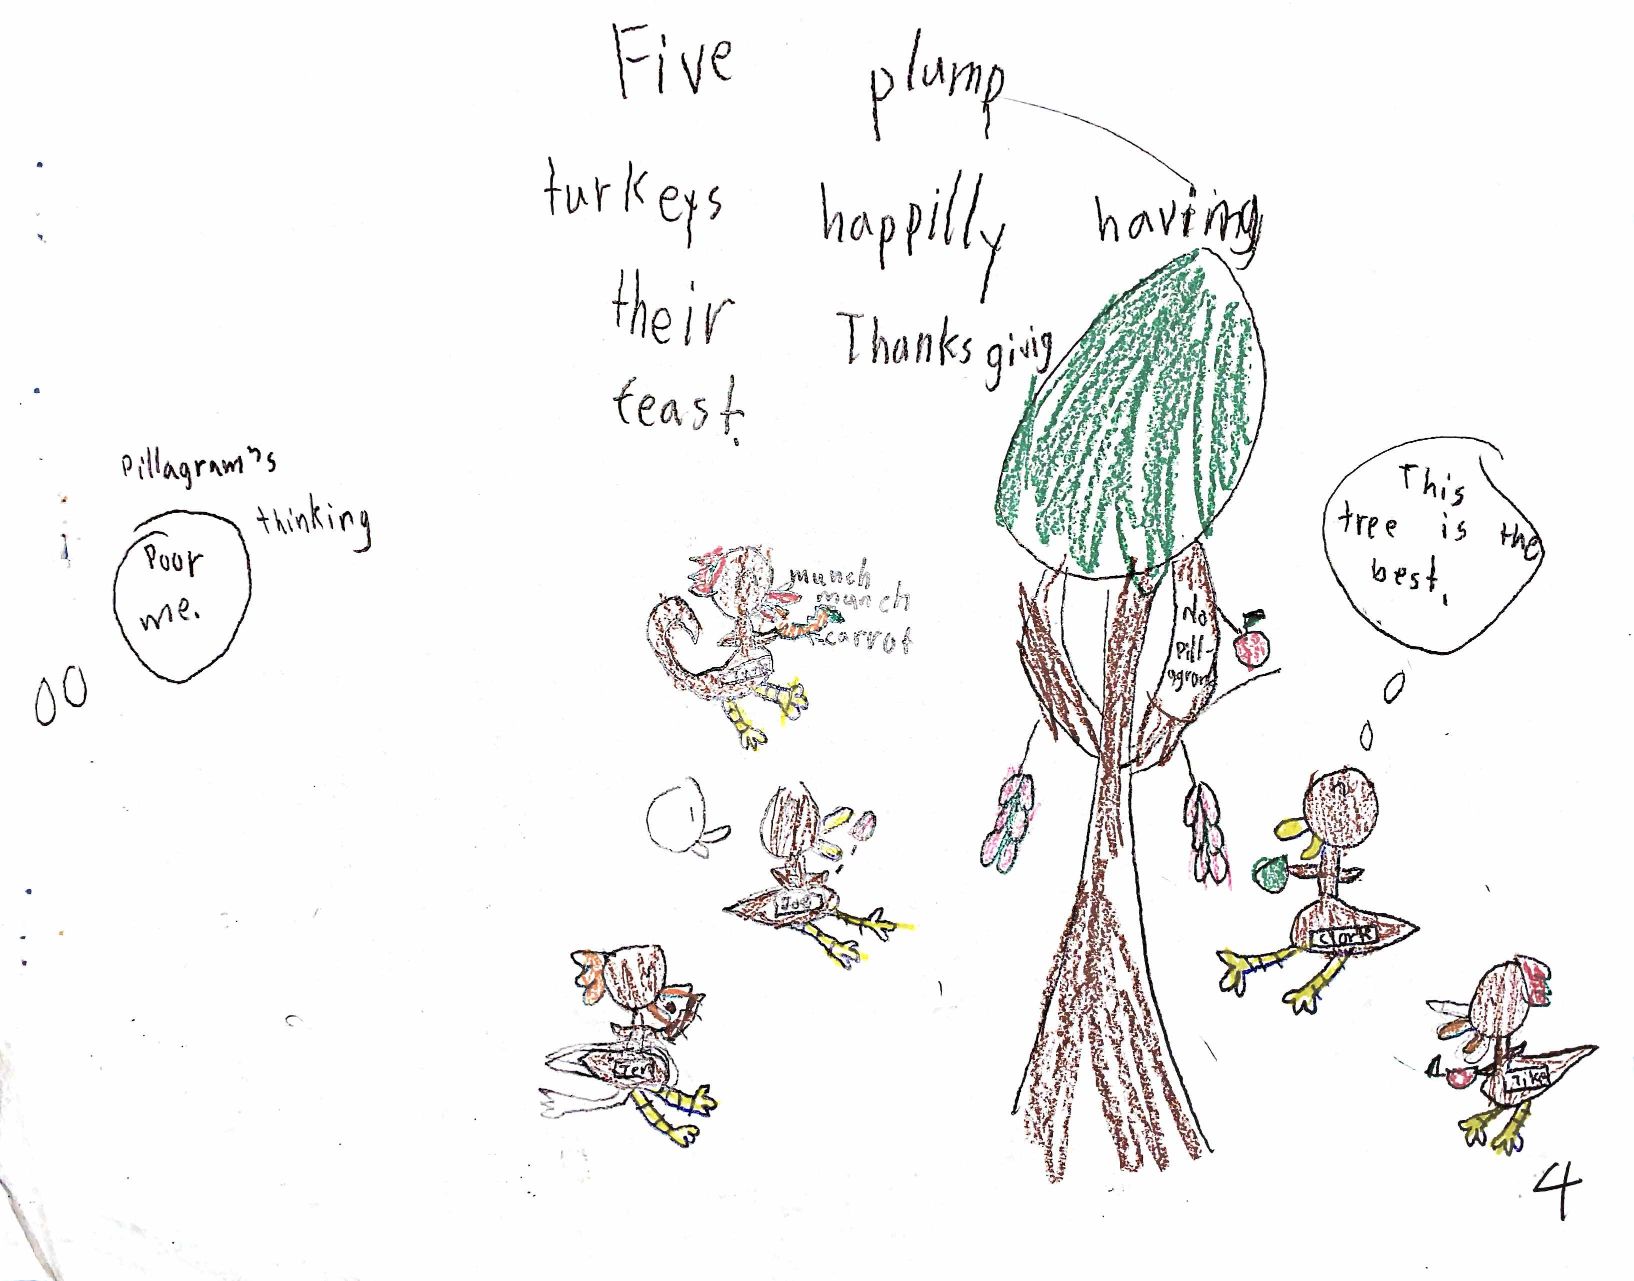 Five plump
turkeys happilly having
their Thanksgivig
feast.
Pillagram's
thinking
Poor
me.
munch
munch
carrot
No
Pill-
agram
This
tree is the
best.
Joe
Clark
Jen
Jike
4